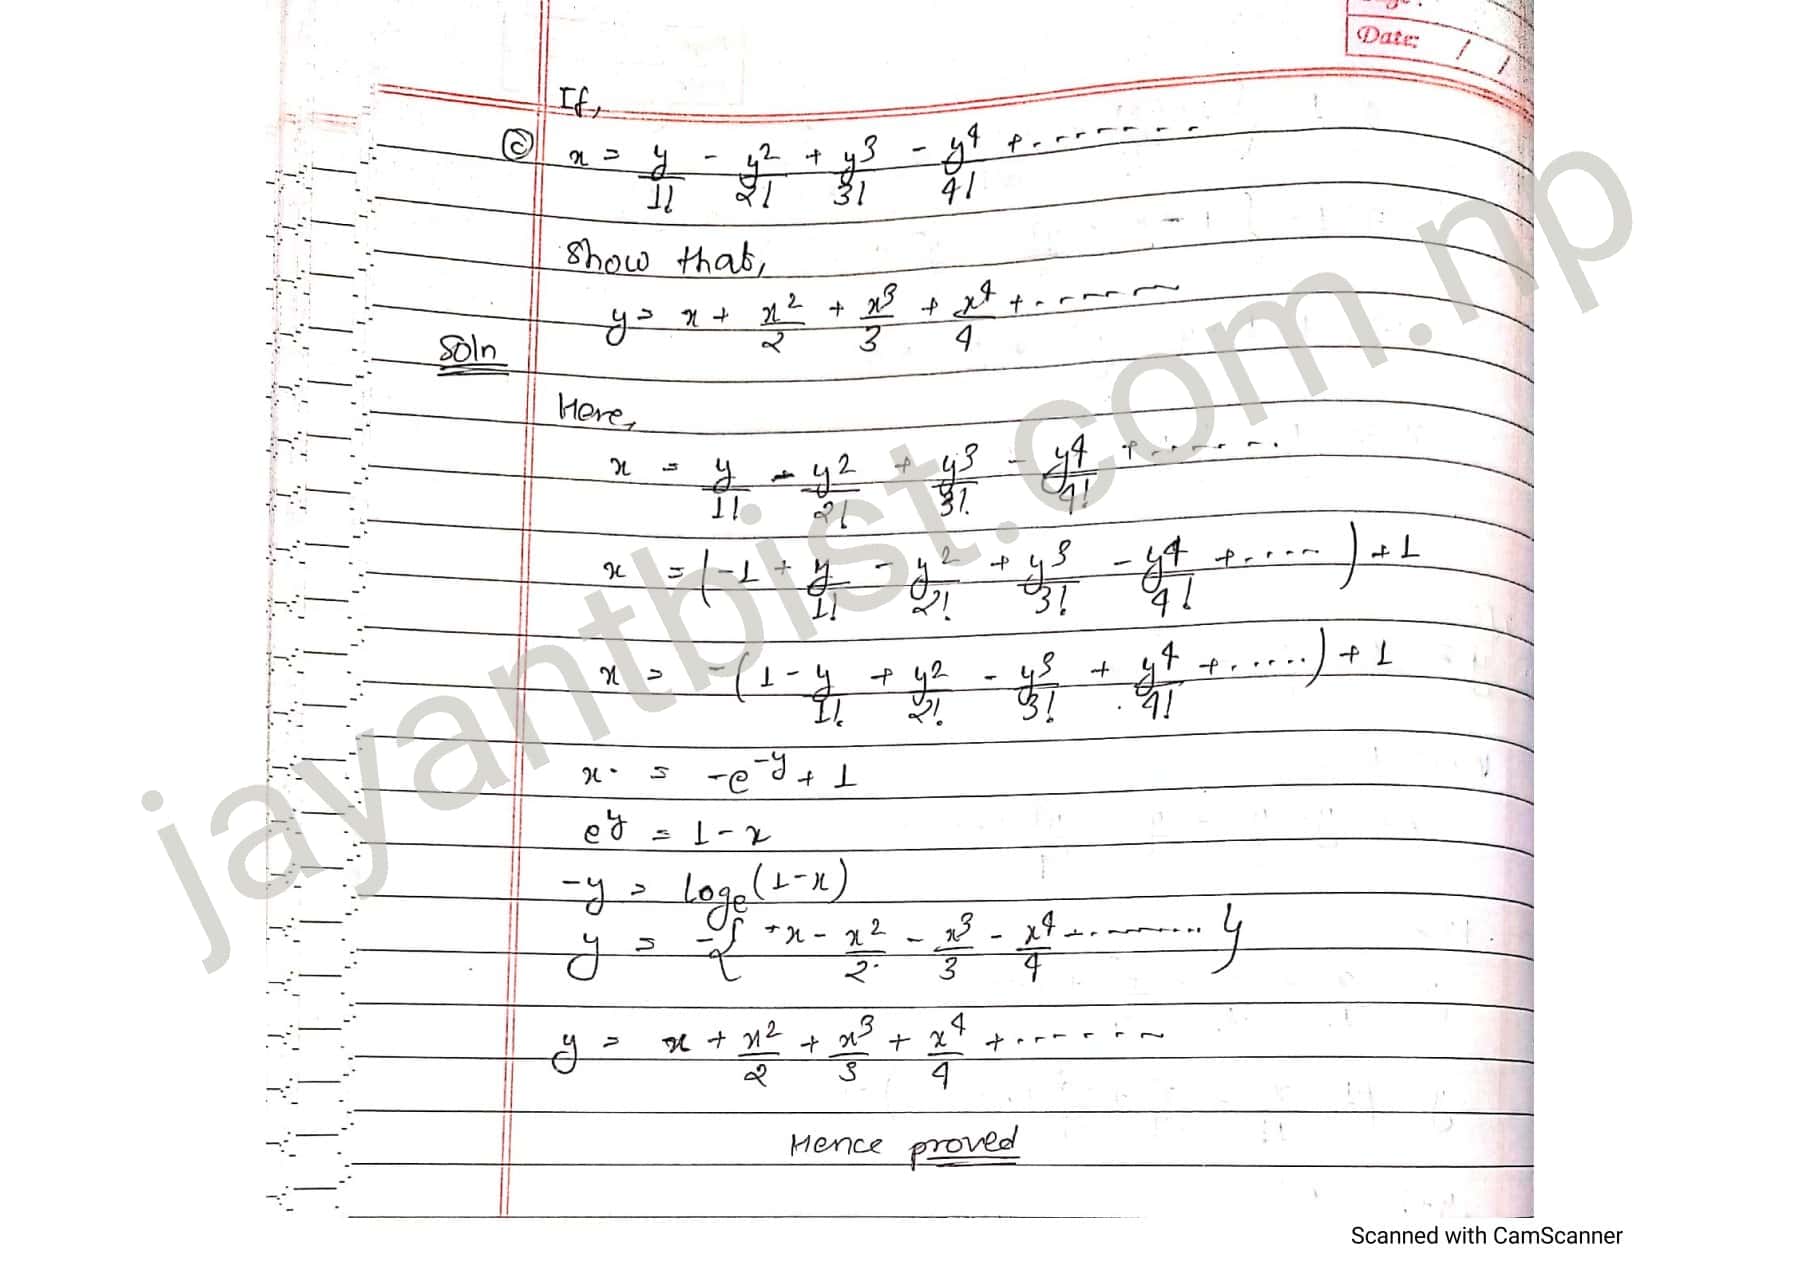 Date: / /
If,
ⓒ x = y/1! - y²/2! + y³/3! - y⁴/4! + .......
Show that,
y = x + x²/2 + x³/3 + x⁴/4 + .......
Soln
Here,
x = y/1! - y²/2! + y³/3! - y⁴/4! + .......
x = (-1 + y/1! - y²/2! + y³/3! - y⁴/4! + .....) + 1
x = -(1 - y/1! + y²/2! - y³/3! + y⁴/4! + .....) + 1
x. = -e^-y + 1
e^y = 1 - x
-y = logₑ(1-x)
y = -{-x - x²/2 - x³/3 - x⁴/4 + .........}
y = x + x²/2 + x³/3 + x⁴/4 + .......
Hence proved
jayantbist.com.np
Scanned with CamScanner